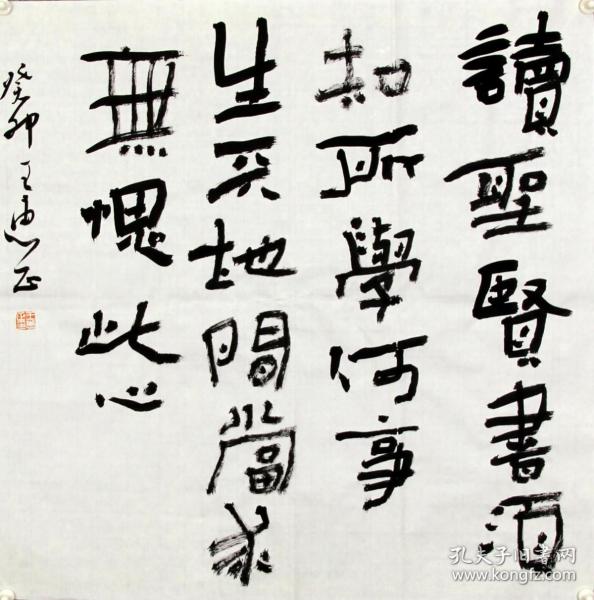 讀聖賢書須
知所學何事
生天地間當求
無愧此心
癸卯王惠正
孔夫子旧书网
www.kongfz.com